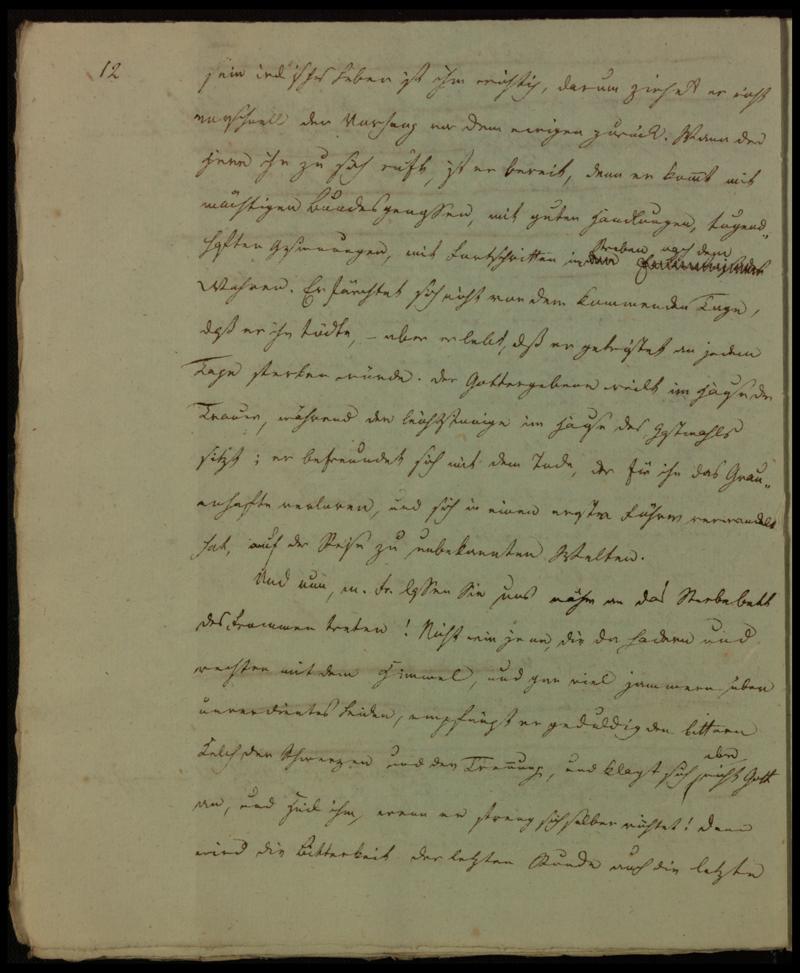 12
sein irdisches Leben ist ihm wichtig, darum ziehet er nicht
vorschnell den Vorhang vor dem ewigen zurück. Wann der
Herr ihn zu sich ruft, ist er bereit, denn er kommt mit
mächtigen Bundesgenossen, mit guten Handlungen, tugend-
haften Gesinnungen, mit Fortschritten im Streben nach dem
Wahren. Er fürchtet sich nicht vor dem kommenden Tage,
daß er ihn tödte, – aber er lebt, daß er getröstet an jedem
Tage sterben würde. Der Gottergebene weilt im Hause der
Trauer, während der leichtsinnige im Hause des Gastmahls
sitzt; er befreundet sich mit dem Tode, der für ihn das Grau-
enhafte verloren, und sich in einen ernsten Führer verwandelt
hat, auf der Reise zu unbekannten Welten.
Und nun, m. Fr. lassen Sie uns näher an das Sterbebett
des Frommen treten! Nicht wie jene, die da hadern und
rechten mit dem Himmel, und gar viel jammern über
unverdientes Leiden, empfängt er geduldig den bittern
Kelch der Schmerzen und der Trennung, und klagt sich, aber nicht Gott
an, und Heil ihm, wenn er streng sich selber richtet! Dann
wird die Bitterkeit der letzten Stunde auch die letzte